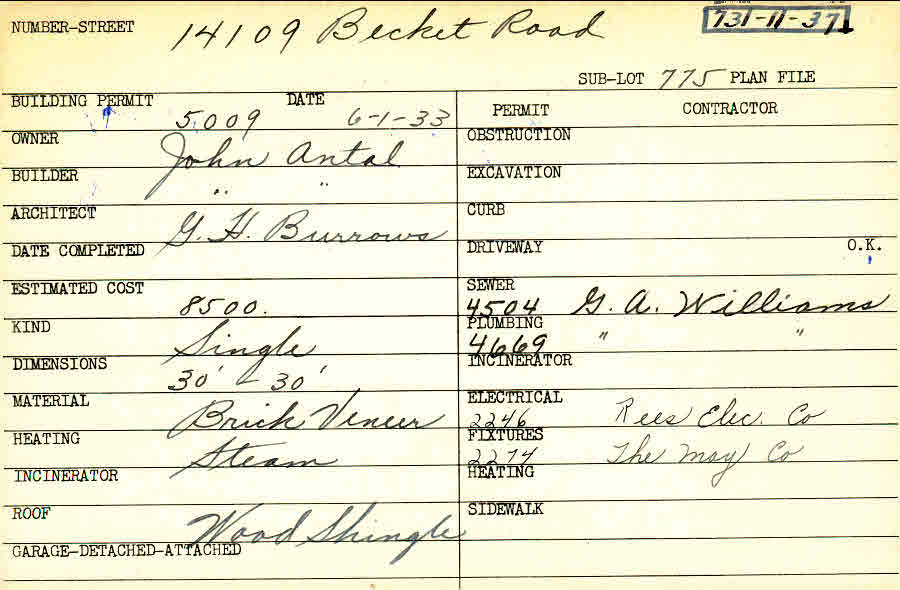 731-11-37
NUMBER-STREET 14109 Becket Road
SUB-LOT 775 PLAN FILE
BUILDING PERMIT 5009 DATE 6-1-33
OWNER John Antal
BUILDER " "
ARCHITECT G. H. Burrows
DATE COMPLETED
ESTIMATED COST 8500.
KIND Single
DIMENSIONS 30' - 30'
MATERIAL Brick Veneer
HEATING Steam
INCINERATOR
ROOF Wood Shingle
GARAGE-DETACHED-ATTACHED
PERMIT CONTRACTOR
OBSTRUCTION
EXCAVATION
CURB
DRIVEWAY O.K.
SEWER
4504 G. A. Williams
PLUMBING
4669 " "
INCINERATOR
ELECTRICAL
2246 Rees Elec. Co
FIXTURES
2274 The May Co
HEATING
SIDEWALK